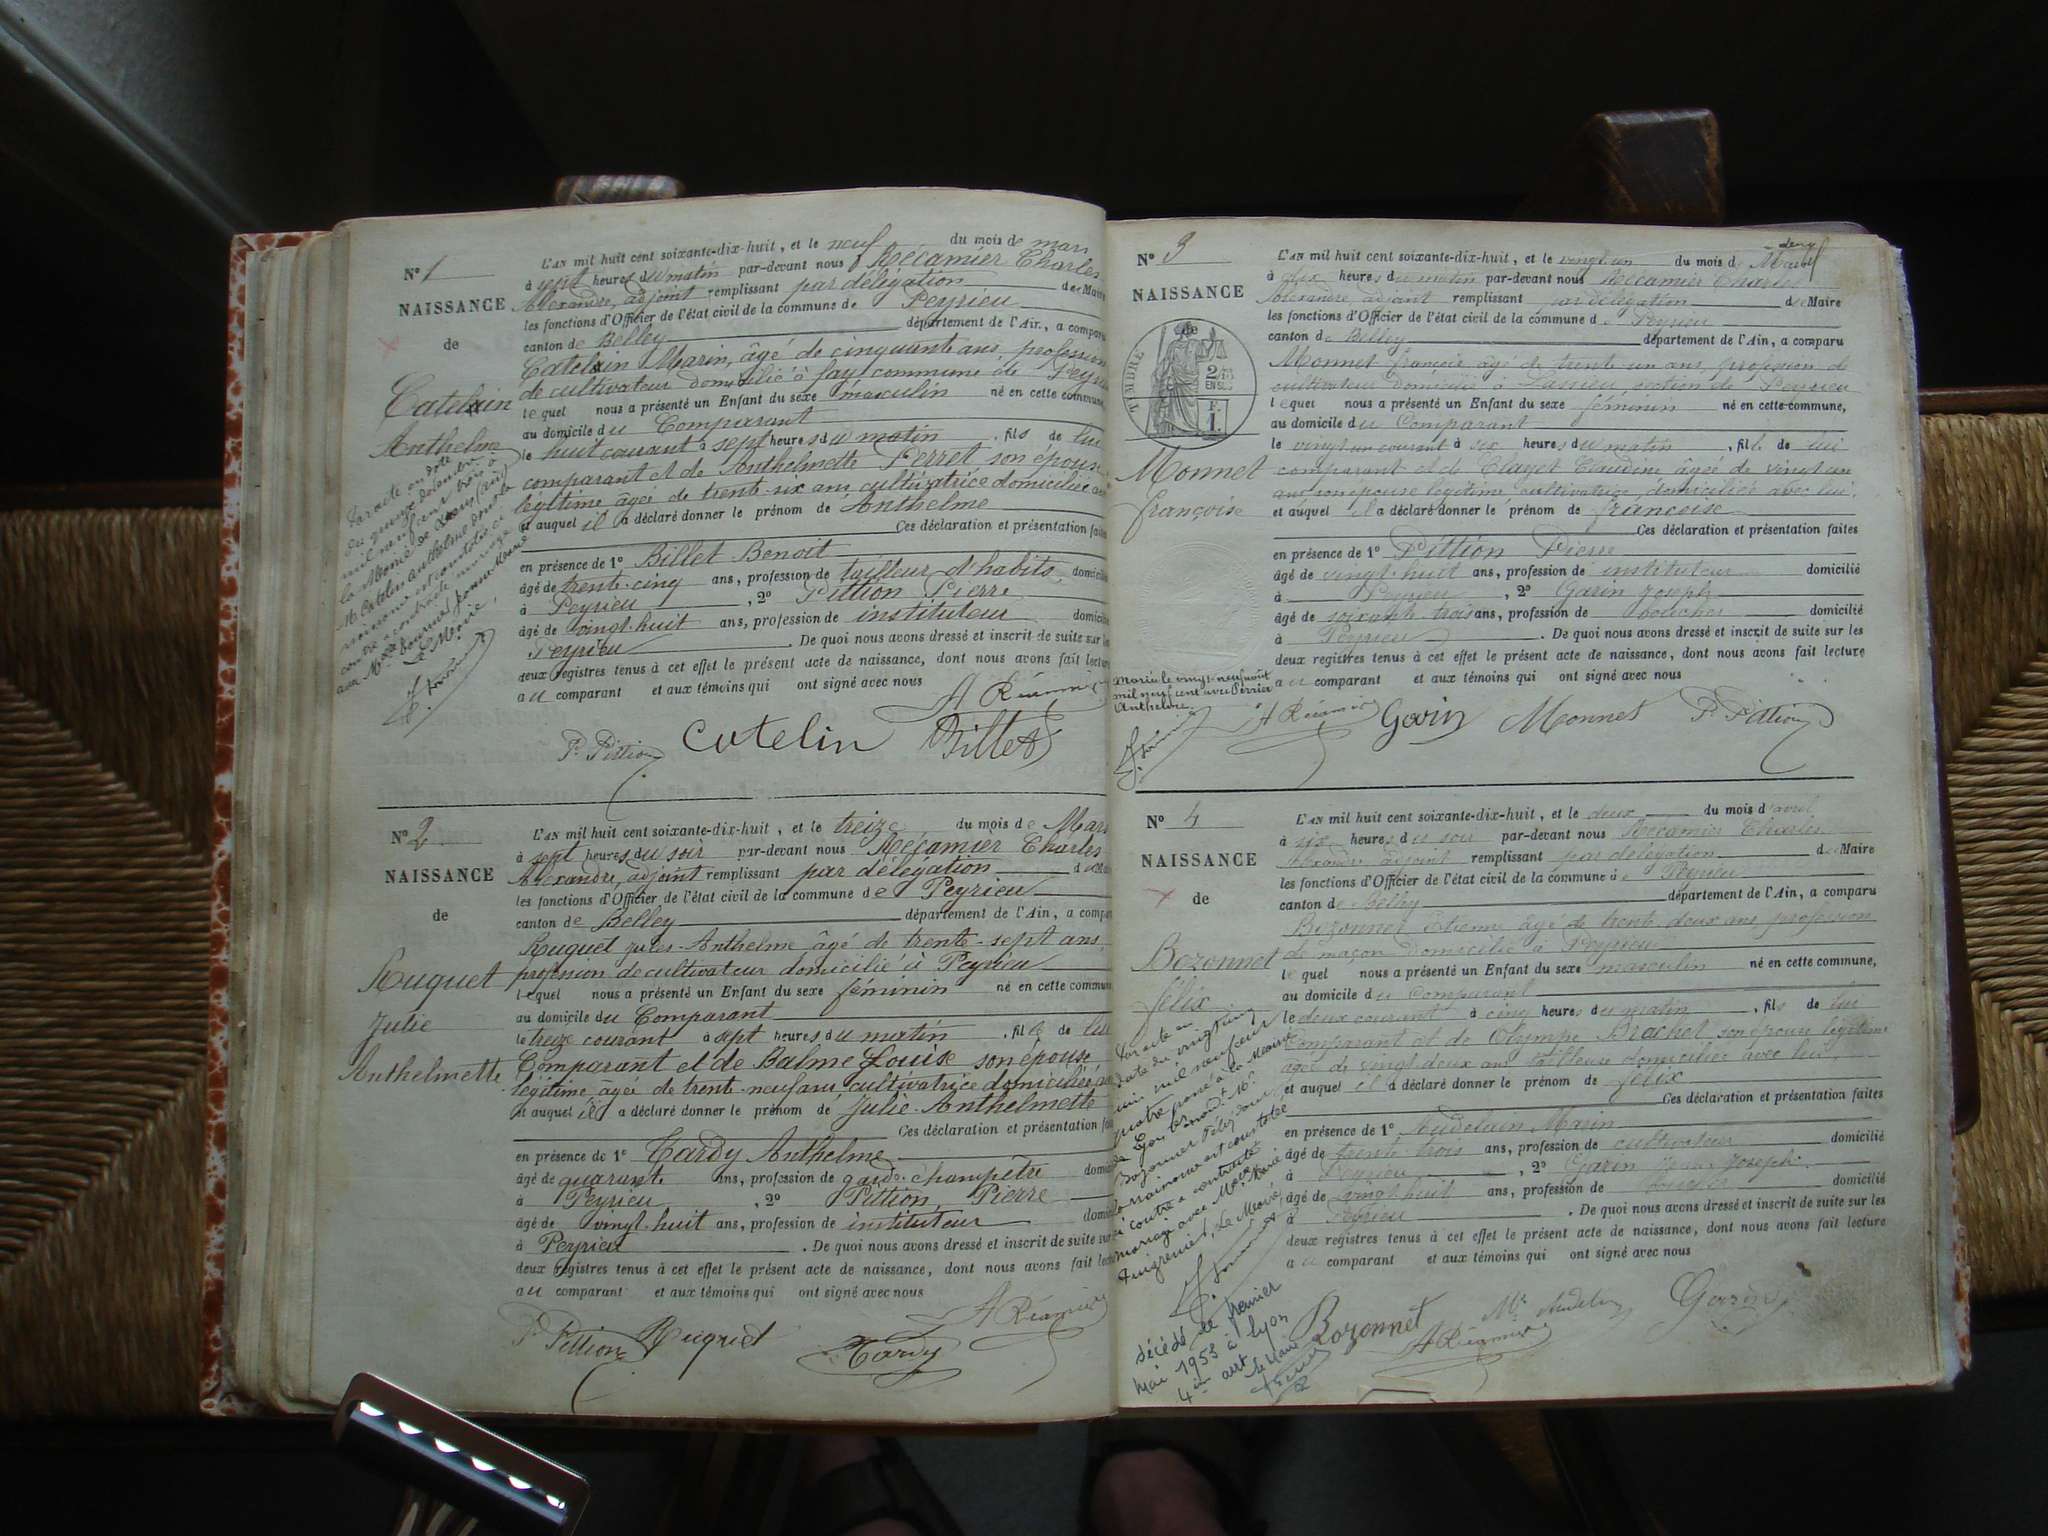 N° 1
NAISSANCE
de
Catelin
Anthelme
L'AN mil huit cent soixante-dix-huit, et le neuf du mois de mars
à sept heures du matin par-devant nous Récamier Charles
Alexandre, adjoint remplissant par délégation de Maire
les fonctions d'Officier de l'état civil de la commune de Peyrieu
canton de Belley département de l'Ain, a comparu
Catelin Marin, âgé de cinquante ans, profession
de cultivateur domicilié à fay commune de Peyrieu
lequel nous a présenté un Enfant du sexe masculin né en cette commune,
au domicile du Comparant
le huit courant à sept heures du matin, fils de lui
comparant et de Anthelmette Perret son épouse
légitime âgée de trente-six ans, cultivatrice domiciliée
et auquel il a déclaré donner le prénom de Anthelme
Ces déclaration et présentation faites
en présence de 1° Billet Benoit
âgé de trente-cinq ans, profession de tailleur d'habits, domicilié
à Peyrieu, 2° Pittion Pierre
âgé de vingt-huit ans, profession de instituteur domicilié
Peyrieu. De quoi nous avons dressé et inscrit de suite sur les
deux registres tenus à cet effet le présent acte de naissance, dont nous avons fait lecture
au comparant et aux témoins qui ont signé avec nous
A Récamier
P. Pittion Catelin Billet
Par acte en date
du quinze
mil neuf cent trois à
la Mairie de
M. Catelin Anthelme dont la
naissance est constatée ci
contre a contracté mariage
avec
Le Maire,
N° 2
NAISSANCE
de
Ruguet
Julie
Anthelmette
L'AN mil huit cent soixante-dix-huit, et le treize du mois de Mars
à sept heures du soir par-devant nous Récamier Charles
Alexandre, adjoint remplissant par délégation
les fonctions d'Officier de l'état civil de la commune de Peyrieu
canton de Belley département de l'Ain, a comparu
Ruguet Jules-Anthelme âgé de trente-sept ans,
profession de cultivateur domicilié à Peyrieu
lequel nous a présenté un Enfant du sexe féminin né en cette commune
au domicile du Comparant
le treize courant à sept heures du matin, fille de lui
Comparant et de Balme Louise son épouse
légitime âgée de trente-neuf ans, cultivatrice domiciliée
et auquel il a déclaré donner le prénom de Julie-Anthelmette
Ces déclaration et présentation
en présence de 1° Tardy Anthelme
âgé de quarante ans, profession de garde-champêtre
à Peyrieu, 2° Pittion Pierre
âgé de vingt-huit ans, profession de instituteur
à Peyrieu. De quoi nous avons dressé et inscrit de suite sur
deux registres tenus à cet effet le présent acte de naissance, dont nous avons fait
au comparant et aux témoins qui ont signé avec nous
A Récamier
P. Pittion Ruguet Tardy
N° 3
NAISSANCE
de
TIMBRE
F. 1.
Monnet
françoise
L'AN mil huit cent soixante-dix-huit, et le vingt un du mois de Mars
à dix heures du matin par-devant nous Récamier Charles
Alexandre, adjoint remplissant par délégation de Maire
les fonctions d'Officier de l'état civil de la commune de Peyrieu
canton de Belley département de l'Ain, a comparu
Monnet françois, âgé de trente un ans, profession de
cultivateur domicilié à Lassieu, section de Peyrieu
lequel nous a présenté un Enfant du sexe féminin né en cette commune,
au domicile du Comparant
le vingt un courant à six heures du matin, fille de lui
comparant et de Clayet Claudine âgée de vingt
ans son épouse légitime, cultivatrice, domiciliée avec lui.
et auquel il a déclaré donner le prénom de françoise
Ces déclaration et présentation faites
en présence de 1° Pittion Pierre
âgé de vingt-huit ans, profession de instituteur domicilié
à Peyrieu, 2° Garin Joseph
âgé de soixante-trois ans, profession de boucher domicilié
à Peyrieu. De quoi nous avons dressé et inscrit de suite sur les
deux registres tenus à cet effet le présent acte de naissance, dont nous avons fait lecture
au comparant et aux témoins qui ont signé avec nous
Mariée le vingt-neuf août
mil neuf cent avec Perrier
Anthelme.
A Récamier Garin Monnet P. Pittion
N° 4
NAISSANCE
de
Bozonnet
félix
L'AN mil huit cent soixante-dix-huit, et le deux du mois d'avril
à six heures du soir par-devant nous Récamier Charles
Alexandre adjoint remplissant par délégation de Maire
les fonctions d'Officier de l'état civil de la commune de Peyrieu
canton de Belley département de l'Ain, a comparu
Bozonnet Etienne âgé de trente-deux ans, profession
de maçon domicilié à Peyrieu
lequel nous a présenté un Enfant du sexe masculin né en cette commune,
au domicile du Comparant
le deux courant à cinq heures du matin, fils de lui
Comparant et de Olympe Brachet son épouse légitime
âgée de vingt-deux ans tailleuse domiciliée avec lui,
et auquel il a déclaré donner le prénom de félix
Ces déclaration et présentation faites
en présence de 1° Audelain Marin
âgé de trente-trois ans, profession de cultivateur domicilié
à Peyrieu, 2° Garin Joseph
âgé de vingt-huit ans, profession de boucher domicilié
à Peyrieu. De quoi nous avons dressé et inscrit de suite sur les
deux registres tenus à cet effet le présent acte de naissance, dont nous avons fait lecture
au comparant et aux témoins qui ont signé avec nous
Par acte en
date du vingt cinq
juin mil neuf cent
quatre passé à la Mairie
de Lyon
Bozonnet Félix dont
la naissance est constatée
ci contre a contracté
mariage avec Melle
Le Maire,
décédé le premier
Mai 1953 à Lyon
4ème arrt
le Maire
Bozonnet A Récamier Garin